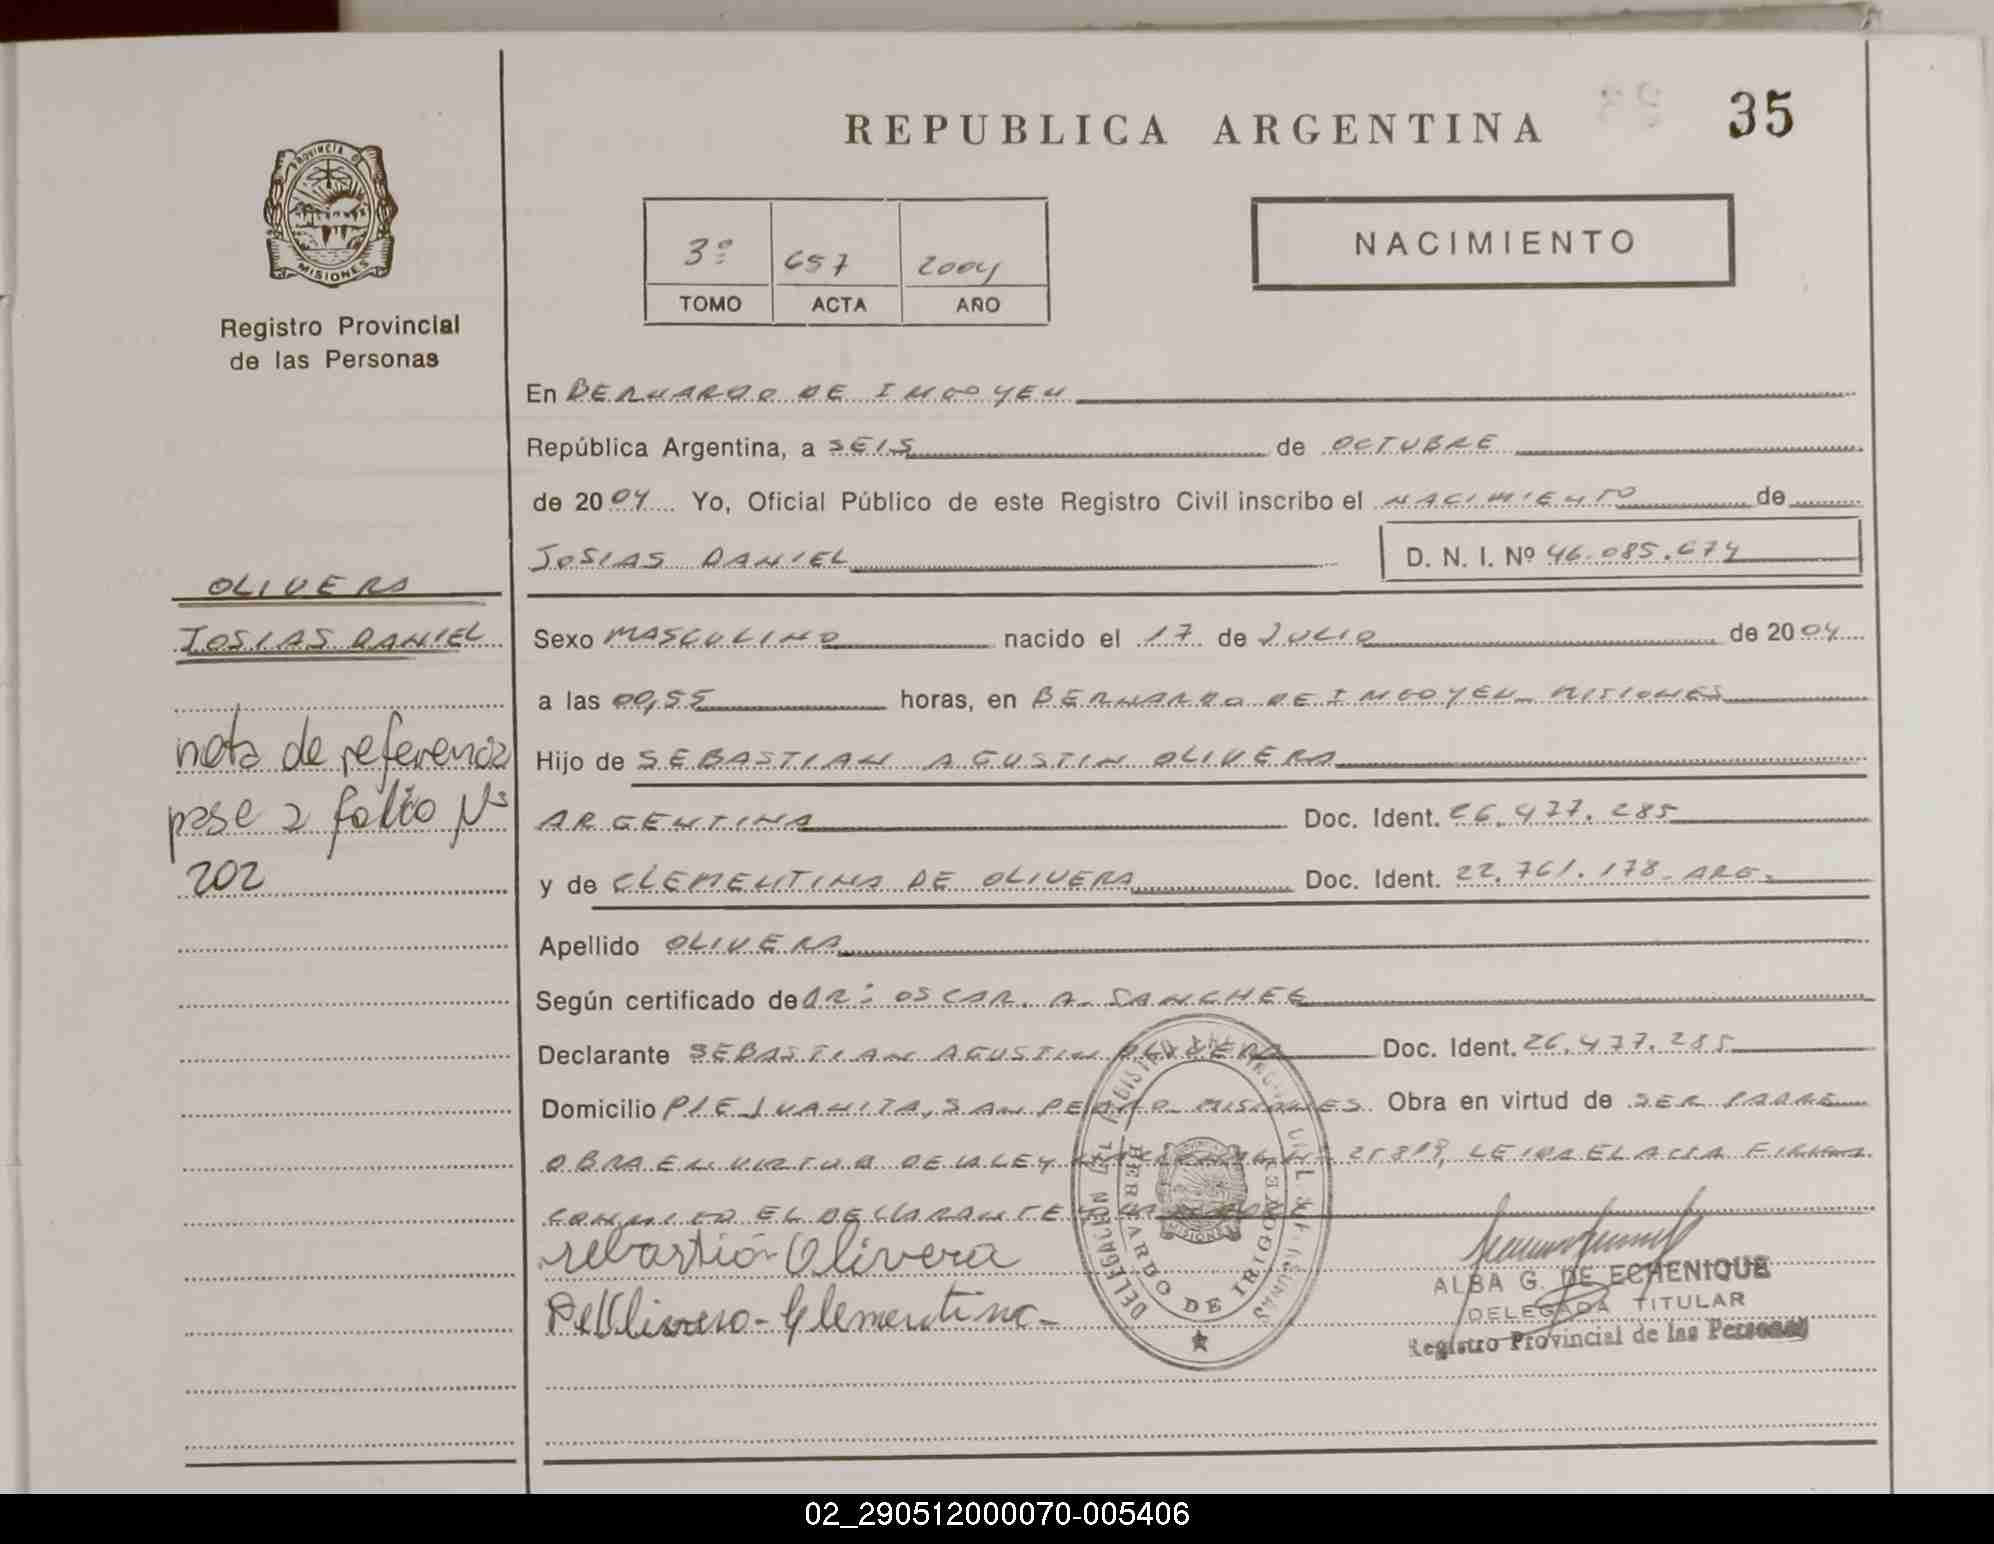 REPUBLICA ARGENTINA
35
PROVINCIA DE
MISIONES
Registro Provincial
de las Personas
3º 657 2004
TOMO ACTA AÑO
NACIMIENTO
En BERNARDO DE IRIGOYEN
República Argentina, a SEIS de OCTUBRE
de 2004 Yo, Oficial Público de este Registro Civil inscribo el NACIMIENTO de
JOSIAS DANIEL D. N. I. Nº 46.085.674
OLIVERA
JOSIAS DANIEL
Sexo MASCULINO nacido el 17 de JULIO de 2004
a las 00,55 horas, en BERNARDO DE IRIGOYEN_ MISIONES
Hijo de SEBASTIAN AGUSTIN OLIVERA
ARGENTINA Doc. Ident. 26.477.285
y de CLEMENTINA DE OLIVERA Doc. Ident. 22.761.178- ARG.
Apellido OLIVERA
Según certificado de DR: OSCAR. A. SANCHEZ
Declarante SEBASTIAN AGUSTIN OLIVERA Doc. Ident. 26.477.285
Domicilio PJE JUANITA, SAN PEDRO_ MISIONES Obra en virtud de SER PADRE
OBRA EN VIRTUD DE LA LEY 25819, LEIDA EL ACTA FIRMAN
CONMIGO EL DECLARANTE
nota de referencia
pase a folio Nº
202
Sebastián Olivera
De Olivera - Clementina -
DELEGACION DEL REGISTRO
BERNARDO DE IRIGOYEN
MISIONES
ALBA G. DE ECHENIQUE
DELEGADA TITULAR
Registro Provincial de las Personas
02_290512000070-005406